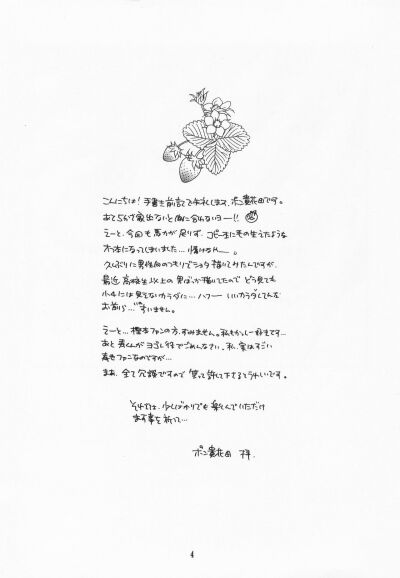 こんにちは!手書き前説で失礼します、ポン貴花田です。
あと5分で家出ないと間に合わないヨー!!
えーと、今回も馬力が足りず、コピー本に毛の生えたような
本になってしまいました…情けなや…。
久しぶりに男性向のつもりでショタ描いてみたんですが、
最近、高校生以上の男ばか描いてたのでどう見ても
小4には見えないカラダに…ハフー いいカラダしてんな
お前ら… すいません。
えーと… ファンの方、すみません。私も 好きです…
あと くんが ヨゴレ役でごめんなさい。私、実はすごい
ファンなのですが…
まあ、全て冗談ですので笑って許して下さるとうれしいです。
それでは、少しばかりでも楽しんでいただけ
ます事を祈って…
ポン貴花田 拝.
4